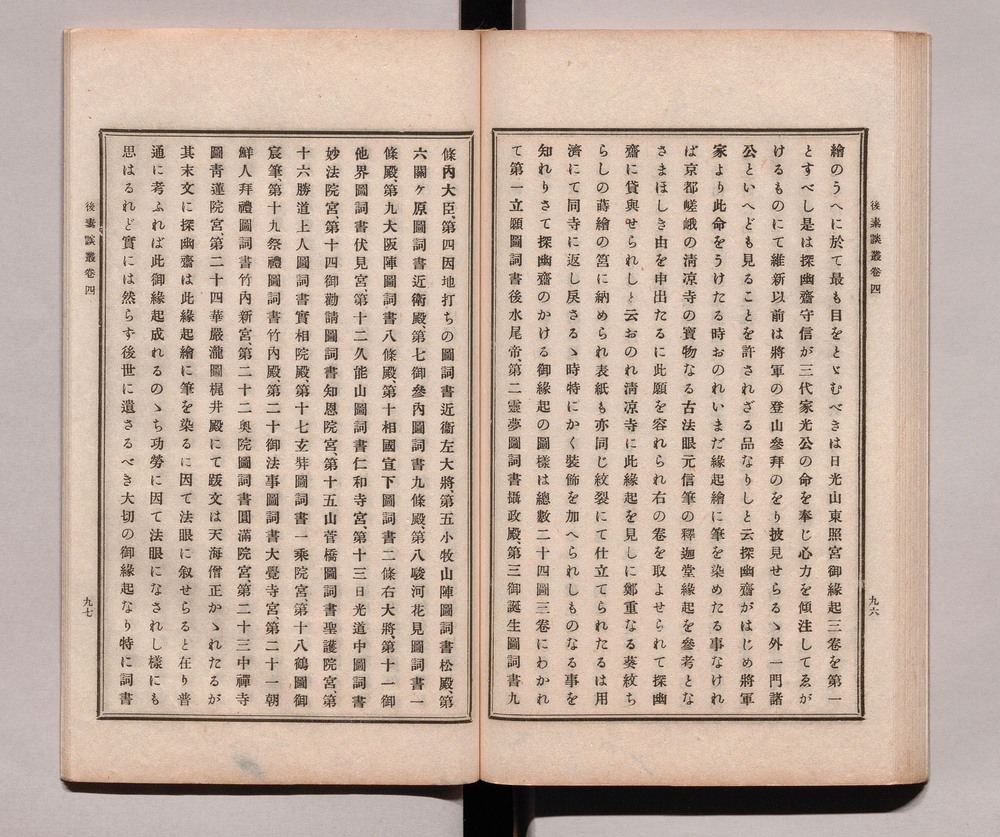 後素談叢卷四
繪のうへに於て最も目をとゞむべきは日光山東照宮御緣起三卷を第一
とすべし是は探幽齋守信が三代家光公の命を奉じ心力を傾注してゑが
けるものにて維新以前は將軍の登山參拜のをり披見せらるゝ外一門諸
公といへども見ることを許されざる品なりしと云探幽齋がはじめ將軍
家より此命をうけたる時おのれいまだ緣起繪に筆を染めたる事なけれ
ば京都嵯峨の淸凉寺の寶物なる古法眼元信筆の釋迦堂緣起を參考とな
さまほしき由を申出たるに此願を容れられ右の卷を取よせられて探幽
齋に貸與せられしと云おのれ淸凉寺に此緣起を見しに鄭重なる葵紋ち
らしの蒔繪の筥に納められ表紙も亦同じ紋裂にて仕立てられたるは用
濟にて同寺に返し戾さるゝ時特にかく裝飾を加へられしものなる事を
知れりさて探幽齋のかける御緣起の圖樣は總數二十四圖三卷にわかれ
て第一立願圖詞書後水尾帝、第二靈夢圖詞書攝政殿、第三御誕生圖詞書九
九六
條內大臣、第四因地打ちの圖詞書近衞左大將、第五小牧山陣圖詞書松殿、第
六關ケ原圖詞書近衞殿、第七御參內圖詞書九條殿、第八駿河花見圖詞書一
條殿、第九大阪陣圖詞書八條殿、第十相國宣下圖詞書二條右大將、第十一御
他界圖詞書伏見宮、第十二久能山圖詞書仁和寺宮、第十三日光道中圖詞書
妙法院宮、第十四御勸請圖詞書知恩院宮、第十五山菅橋圖詞書聖護院宮、第
十六勝道上人圖詞書實相院殿、第十七玄弉圖詞書一乘院宮、第十八鶴圖御
宸筆、第十九祭禮圖詞書竹內殿、第二十御法事圖詞書大覺寺宮、第二十一朝
鮮人拜禮圖詞書竹內新宮、第二十二奧院圖詞書圓滿院宮、第二十三中禪寺
圖靑蓮院宮、第二十四華嚴瀧圖梶井殿にて跋文は天海僧正かゝれたるが
其末文に探幽齋は此緣起繪に筆を染るに因て法眼に敍せらると在り普
通に考ふれば此御緣起成れるのゝち功勞に因て法眼になされし樣にも
思はるれど實には然らず後世に遺さるべき大切の御緣起なり特に詞書
後素談叢卷四
九七